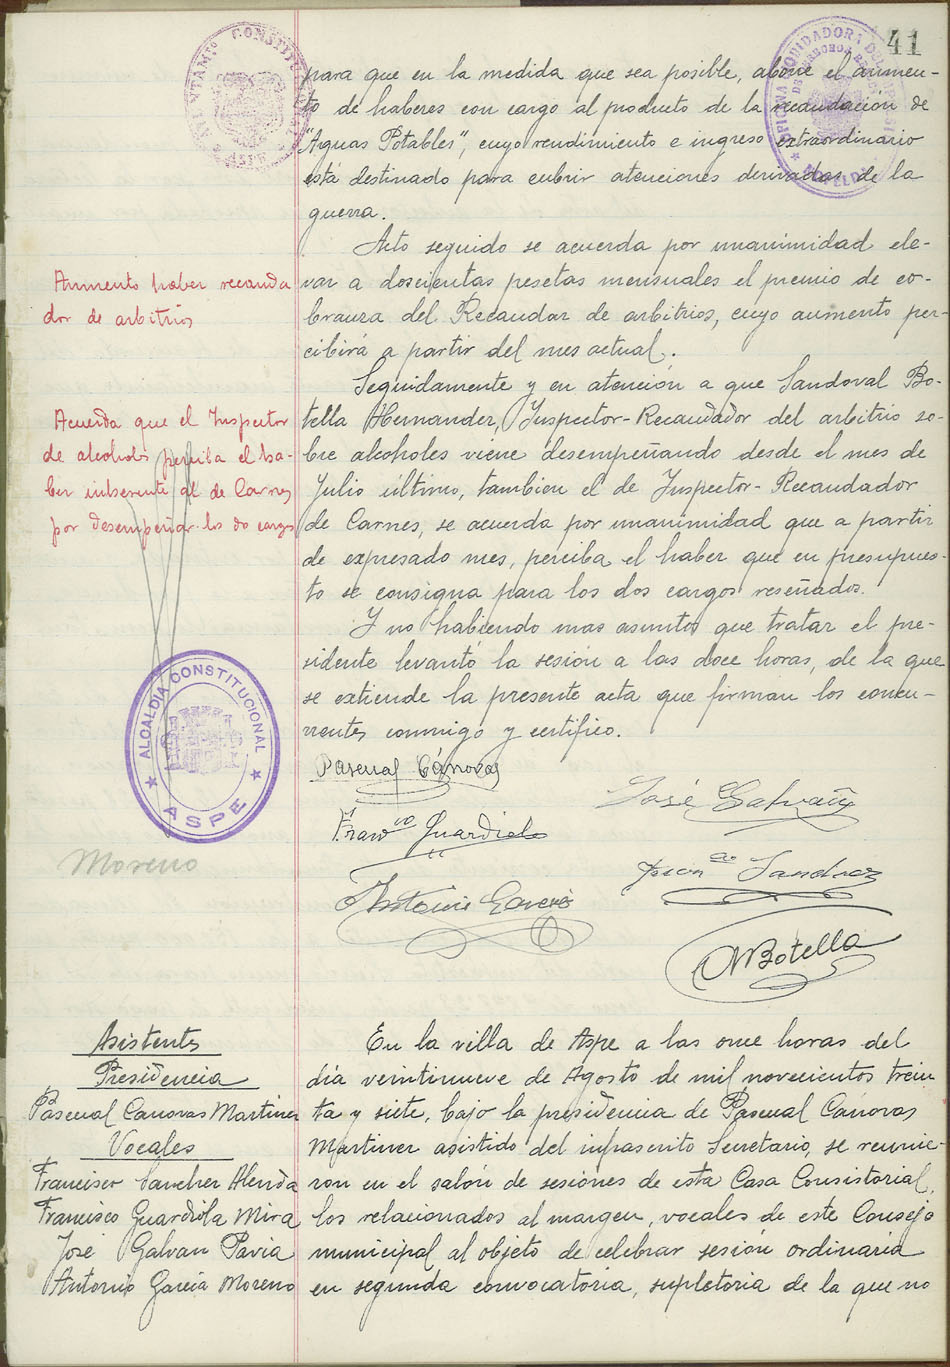 41
AYUNTAMTº CONSTITUCIONAL
ASPE
OFICINA LIQUIDADORA DEL
NOVELDA
para que en la medida que sea posible, abone el aumen-
to de haberes con cargo al producto de la recaudación de
"Aguas Potables", cuyo rendimiento e ingreso extraordinario
está destinado para cubrir atenciones derivadas de la
guerra.
Acto seguido se acuerda por unanimidad ele-
var a doscientas pesetas mensuales el premio de co-
branza del Recaudar de arbitrios, cuyo aumento per-
cibirá a partir del mes actual.
Aumento haber recauda
dor de arbitrios
Seguidamente y en atención a que Sandoval Bo-
tella Hernandez, Inspector-Recaudador del arbitrio so-
bre alcoholes viene desempeñando desde el mes de
Julio último, tambien el de Inspector-Recaudador
de Carnes, se acuerda por unanimidad que a partir
de expresado mes, perciba el haber que en presupues-
to se consigna para los dos cargos reseñados.
Acuerda que el Inspector
de alcoholes perciba el ha-
ber inherente al de Carnes
por desempeñar los do cargos
Y no habiendo mas asuntos que tratar el pre-
sidente levantó la sesión a las doce horas, de la que
se extiende la presente acta que firman los concu-
rrentes conmigo y certifico.
ALCALDIA CONSTITUCIONAL
ASPE
Pascual Cánovas
José Galvañ
Francº Guardiola
Moreno
Francº Sanchez
Antonio Garcia
NBotella
Asistentes
Presidencia
Pascual Canovas Martinez
Vocales
Francisco Sanchez Alenda
Francisco Guardiola Mira
José Galvan Pavia
Antonio Garcia Moreno
En la villa de Aspe a las once horas del
día veintinueve de Agosto de mil novecientos trein
ta y siete, bajo la presidencia de Pascual Cánovas
Martinez asistido del infrascrito Secretario, se reunie-
ron en el salón de sesiones de esta Casa Consistorial,
los relacionados al margen, vocales de este Consejo
municipal al objeto de celebrar sesión ordinaria
en segunda convocatoria, supletoria de la que no